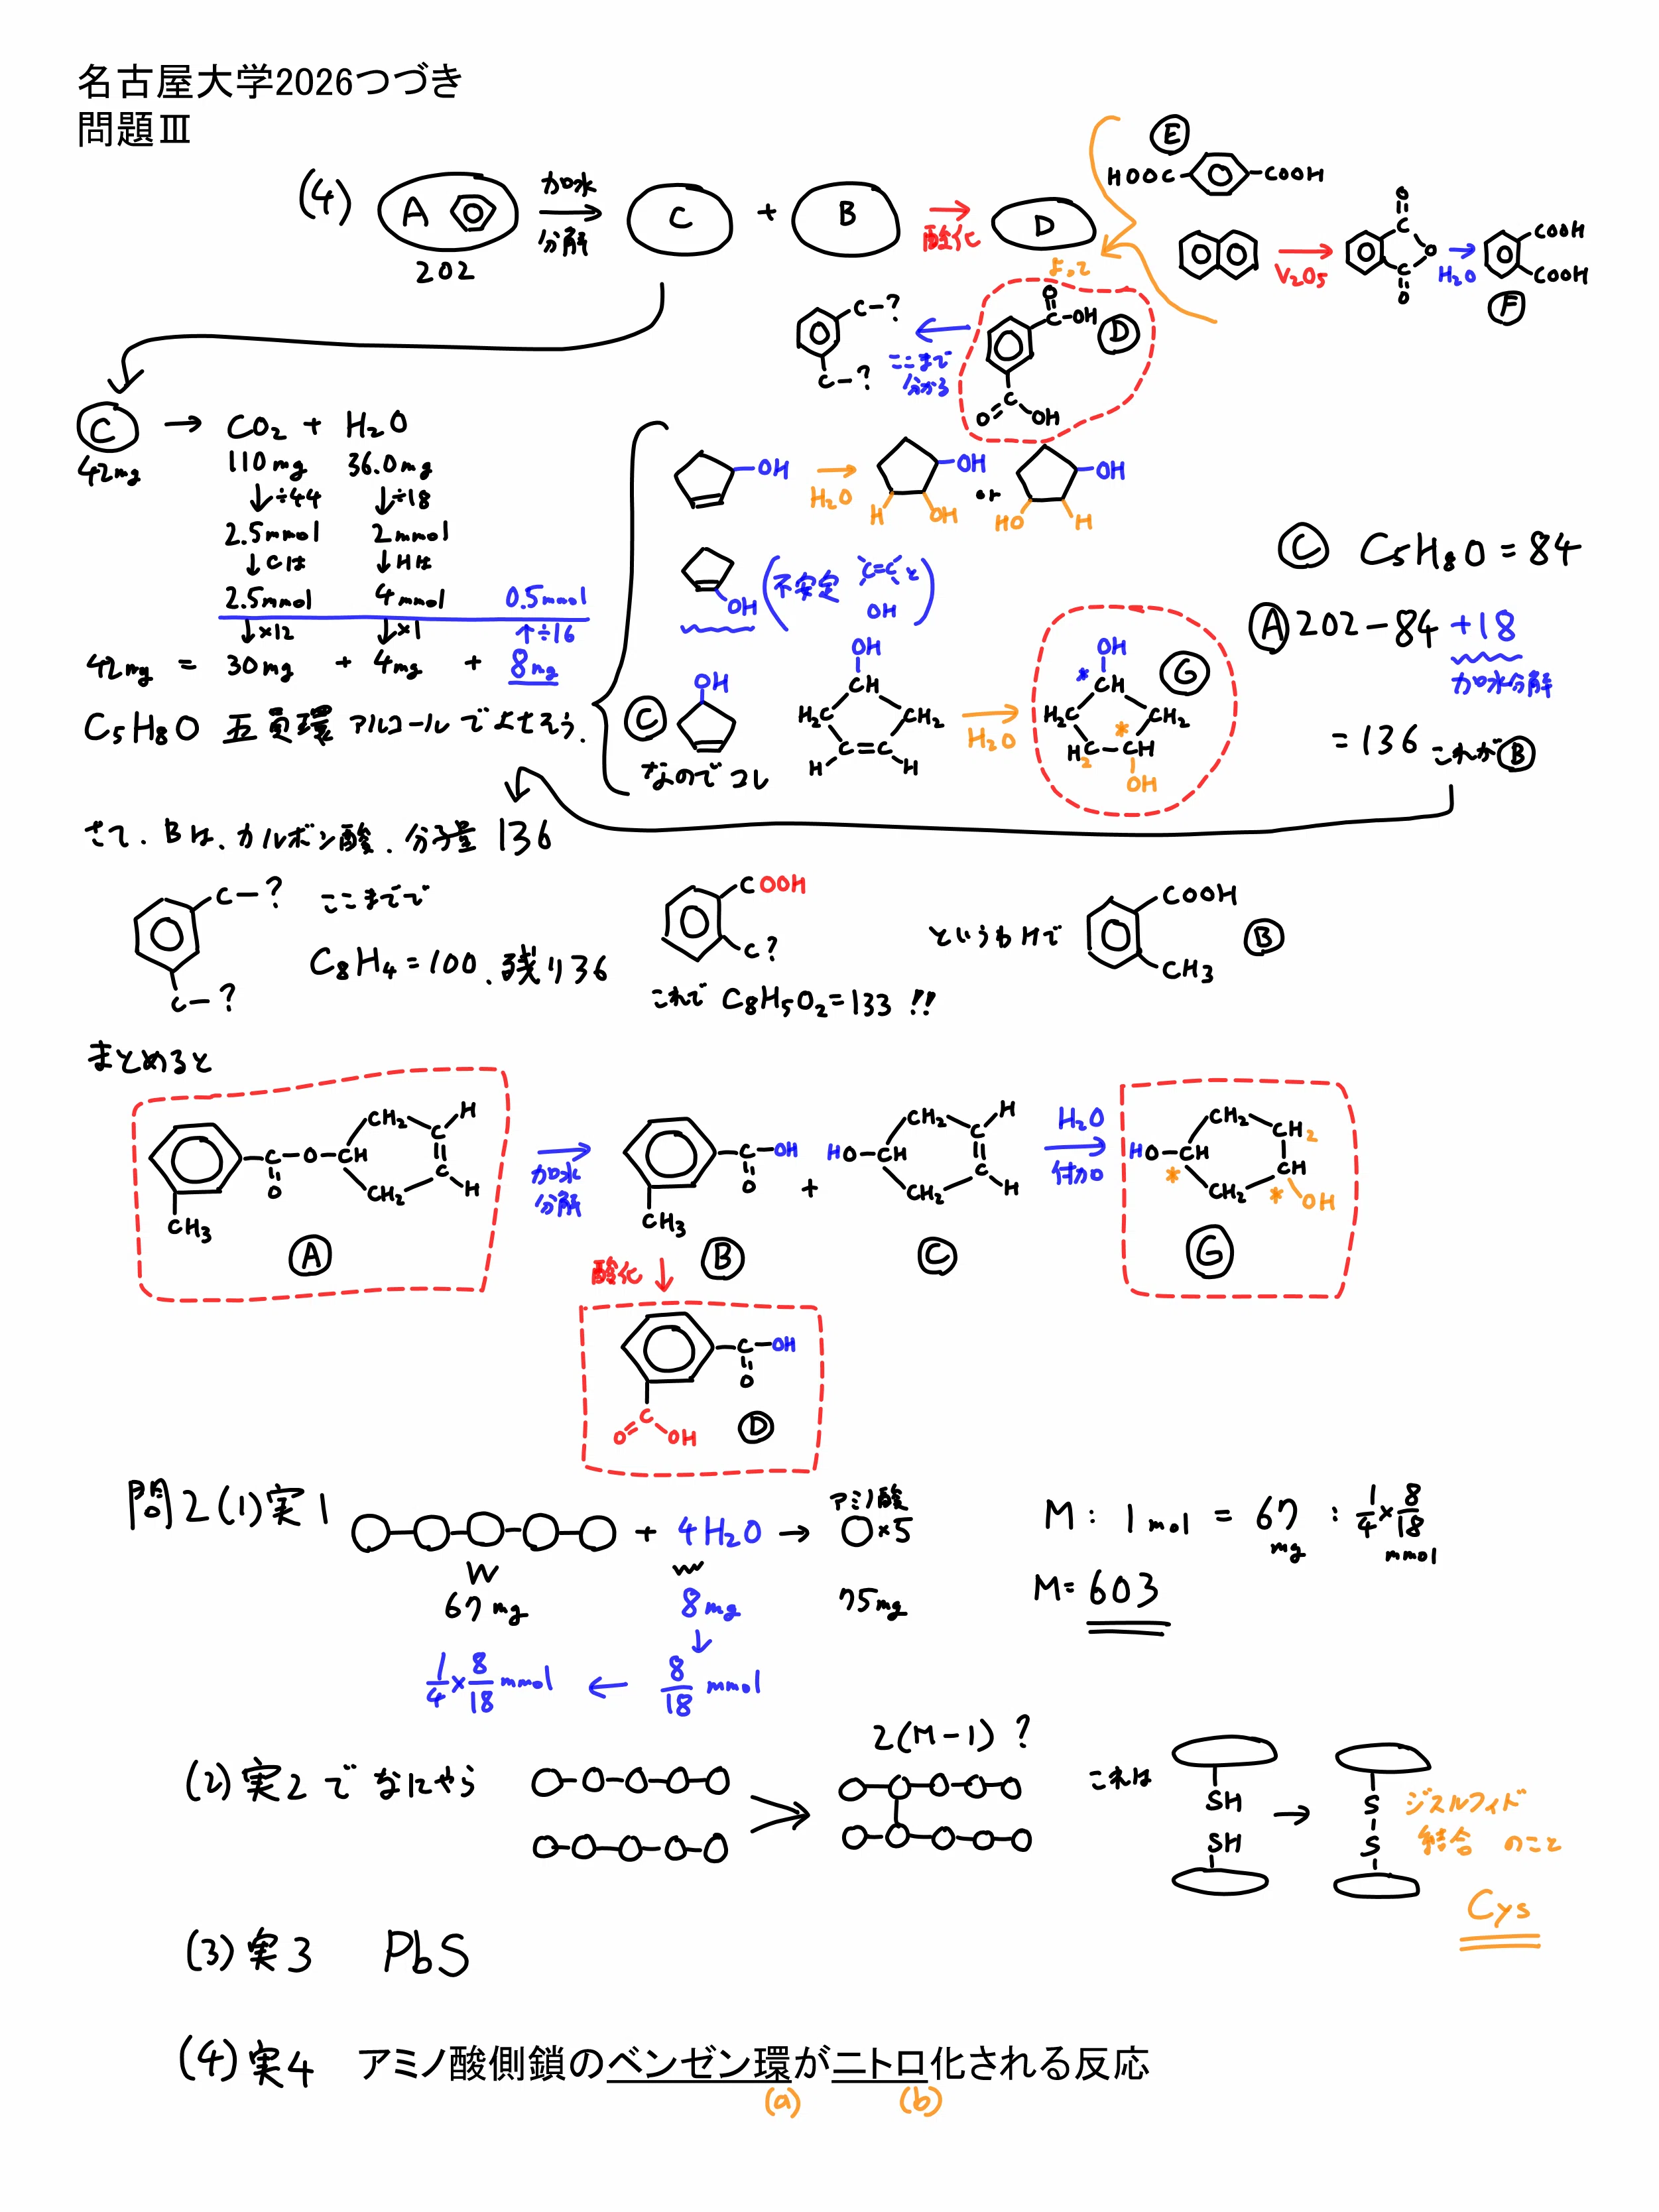 名古屋大学2026つづき
問題Ⅲ
(4) A 加水分解 C + B 酸化 D
202
よって
E
HOOC COOH
V₂O₅ H₂O
O C O C O
COOH
COOH
F
C-?
C-?
ここまで分かる
O C-OH D
O C OH
C → CO₂ + H₂O
42mg 110mg 36.0mg
↓÷44 ↓÷18
2.5mmol 2mmol
↓Cは ↓Hは
2.5mmol 4mmol 0.5mmol
↓×12 ↓×1 ↑÷16
42mg = 30mg + 4mg + 8mg
C₅H₈O 五員環 アルコールでよさそう.
OH H₂O OH or OH
H OH HO H
OH (不安定 C=Cと OH)
C OH
なのでコレ
OH
CH
H₂C CH₂
C=C
H H
H₂O
OH G
* CH
H₂C * CH₂
H₂C-CH
OH
C C₅H₈O=84
A 202-84+18
加水分解
=136 これがB
さて、Bは、カルボン酸、分子量 136
C-? ここまでで
C₈H₄=100、残り36
C-?
COOH
C?
これで C₈H₅O₂=133 !!
というわけで
COOH
CH₃
B
まとめると
C-O-CH
O
CH₂ C H
CH₂ C H
CH₃
A
加水分解
C-OH
O
CH₃
B
+
HO-CH
CH₂ C H
CH₂ C H
C
H₂O
付加
HO-CH *
CH₂ CH₂
CH₂ CH
* OH
G
酸化 ↓
C-OH
O
C
O OH
D
問2(1)実1
+ 4H₂O → アミノ酸 ○×5
67mg 8mg 75mg
↓
1/4×8/18 mmol ← 8/18 mmol
M : 1mol = 67mg : 1/4×8/18 mmol
M=603
(2)実2でなにやら
2(M-1)?
これは
SH → S
SH S
ジスルフィド
結合 のこと
Cys
(3)実3 PbS
(4)実4 アミノ酸側鎖のベンゼン環がニトロ化される反応
(a) (b)